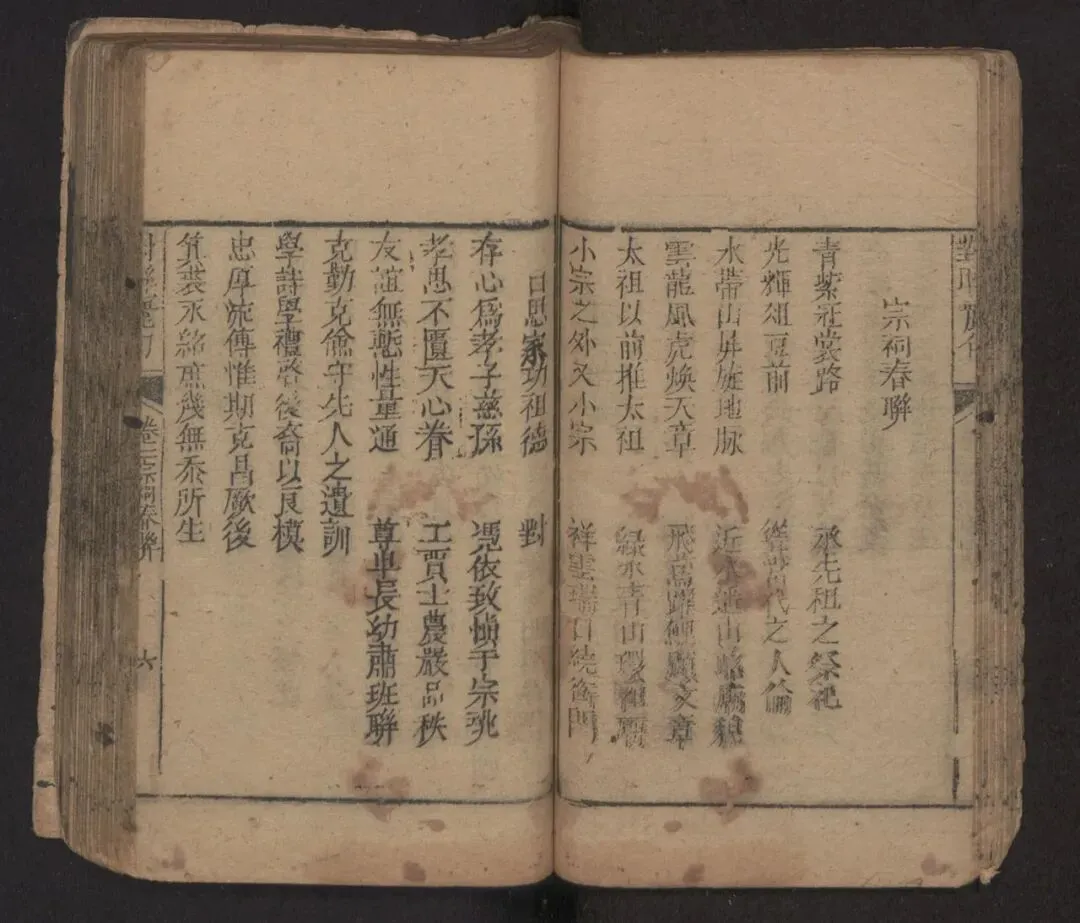 宗祠春聯
青紫冠裳路 承先祖之祭祀
光輝俎豆前 從當代之人倫
水帶山屏旋地脉 近水
雲龍風虎煥天章 飛鳶躍 顯文章
太祖以前推太祖 綠水青山環
小宗之外又小宗 祥雲瑞日繞 門
日思家功祖德 對
存心為孝子慈孫 憑依致慎于宗祧
孝思不匱天心眷 工賈士農嚴品秩
友誼無慙性量通 尊卑長幼肅班聯
克勤克儉守先人之遺訓
學詩學禮啓後裔以良模
忠厚流傳惟期克昌厥後
箕裘永紹庶幾無忝所生
卷二宗祠春聯
六